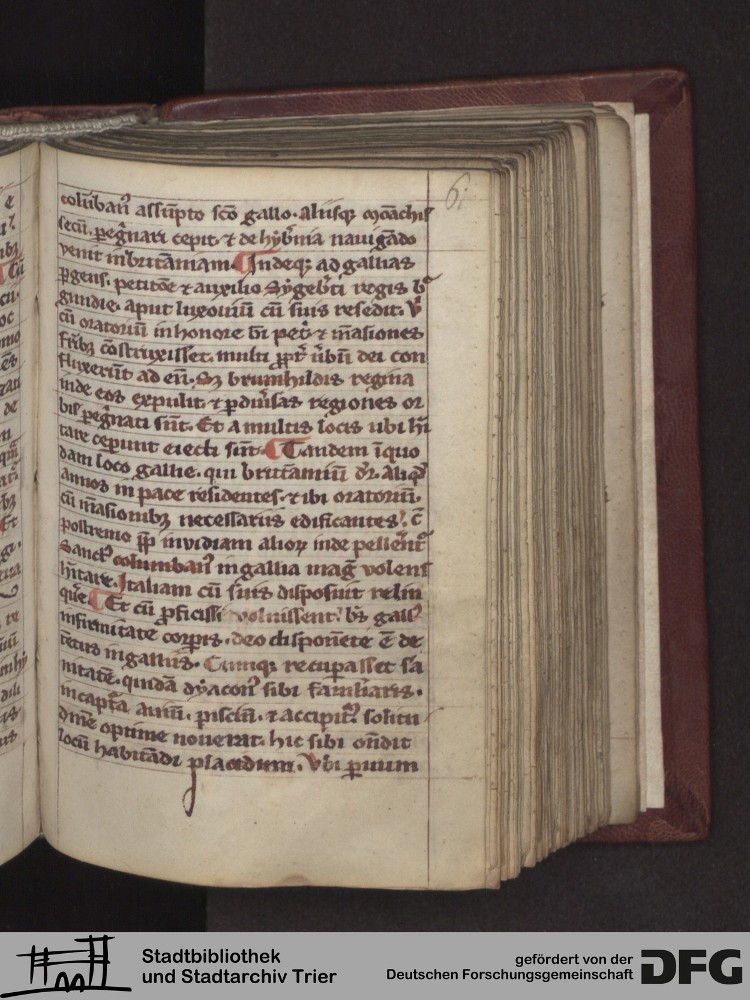 6i
colūbanꝰ assūpto scō gallo. aliisqꝫ monachis
secū. ꝑegrinari cepit. ⁊ de hybernia nauigādo
venit in britaniam. Indeqꝫ ad gallias
ꝑgens. petitōe ⁊ auxilio Sygeberti regis bur
gundie. aput luxouiū cū suis resedit.
cū oratoriū in honore bī petri ⁊ māsiones
fr̄ibꝫ cōstruxisset. multi ꝓpt̄ ūbū dei con
fluxerūt ad eū. Sꝫ brunihildis regina
inde eos expulit. ⁊ ꝑ diūsas regiones or
bis ꝑegrinati sūt. Et a multis locis ubi hī
tare ceperunt eiecti sūt. Tandem ī quo
dam loco gallie. qui britanniū dr̄. aliqꝫ
annos in pace residentes. ⁊ ibi oratoriū.
cū māsionibꝫ necessariis edificantes.
postremo ꝓpt̄ inuidiam alioꝝ inde pellentr̄
Sanctꝰ columbanꝰ in gallia magͥ volens
hītare. Italiam cū suis disposuit relin
quere. Et cū ꝓficissi voluissent. bs̄ gallꝰ
infirmitate corꝑis. deo disponēte ē de
tētus in galliis. Cumqꝫ recuperasset sa
nitatē. quidā dyaconꝰ sibi familiaris.
in captura auiū. pisciū. ⁊ accipitrū solitu
dinē optime nouerat. hic sibi oñdit
locū habitādi placidum. Vbi ꝑuum
Stadtbibliothek
und Stadtarchiv Trier
gefördert von der
Deutschen Forschungsgemeinschaft
DFG